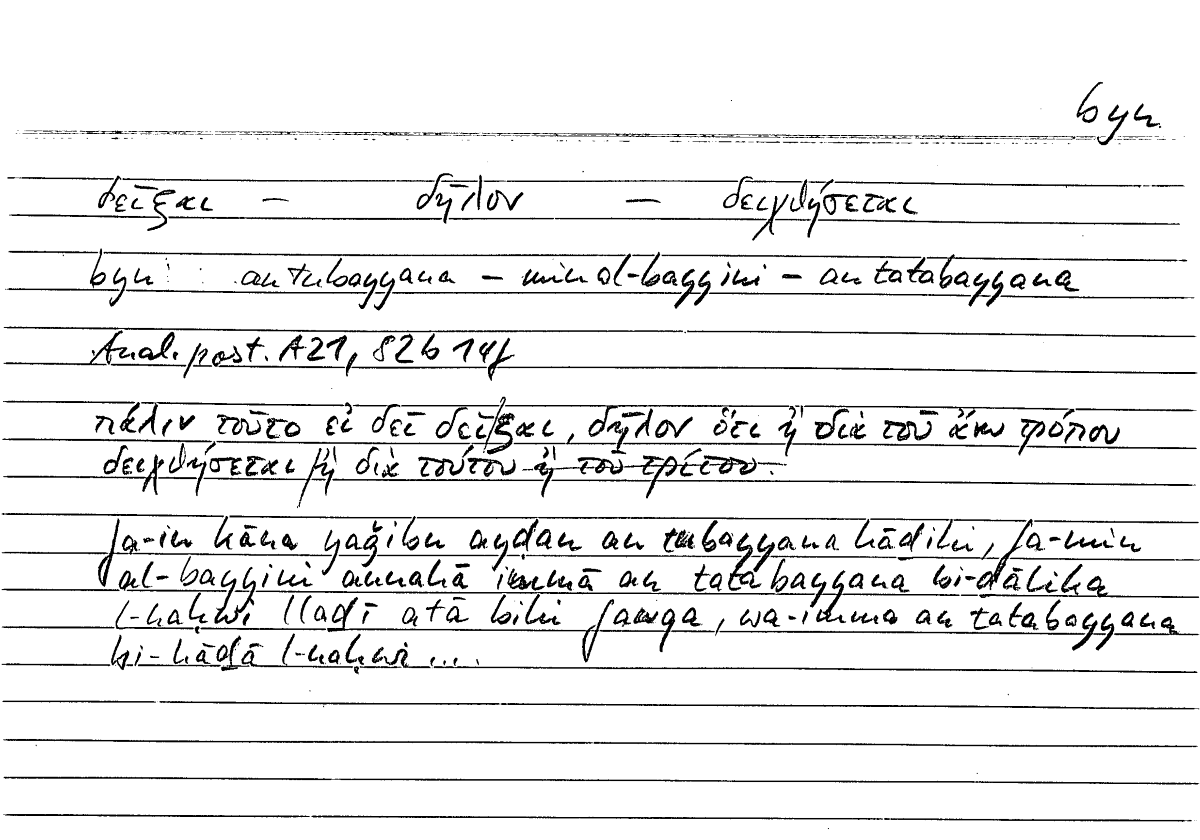 byn
δεῖξαι — δῆλον — δειχθήσεται
byn: an tubayyana – min al-bayyini – an tatabayyana
Anal. post. A21, 82b 14f
πάλιν τοῦτο εἰ δεῖ δεῖξαι, δῆλον ὅτι ἢ διὰ τοῦ ἄνω τρόπου
δειχθήσεται /ἢ διὰ τούτου ἢ τοῦ τρίτου.
fa-in kāna yaǧibu ayḍan an tubayyana hāḏihi, fa-min
al-bayyini annahā immā an tatabayyana bi-ḏālika
l-naḥwi llaḏī atā bihi fawqa, wa-imma an tatabayyana
bi-hāḏā l-naḥwi ....